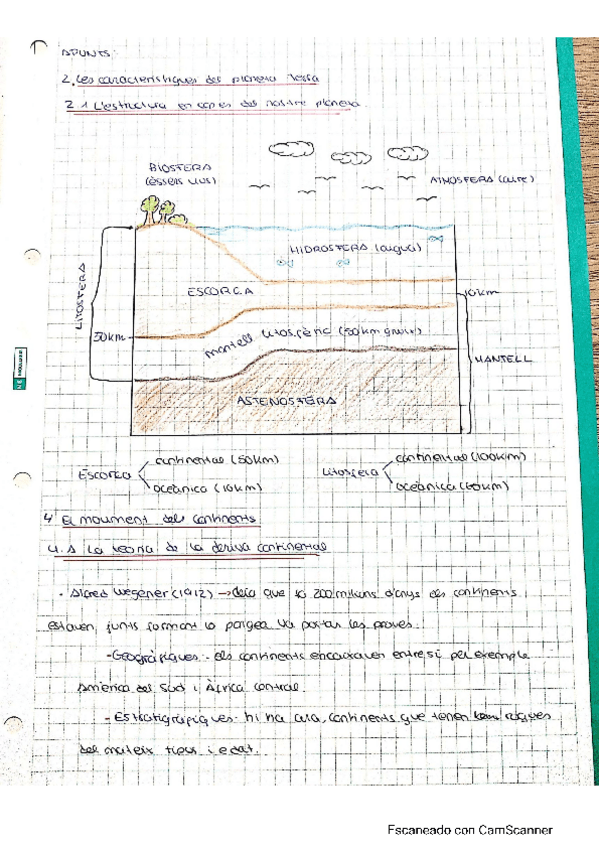 APUNTS:
2. Les característiques del planeta Terra
2.1 L'estructura en capes del nostre planeta
BIOSFERA
(éssers vius)
ATMOSFERA (aire)
HIDROSFERA (aigua)
LITOSFERA
ESCORÇA
10km
50km
mantell litosfèric (50km gruix)
MANTELL
ASTENOSFERA
ESCORÇA
continental (50km)
oceànica (10km)
Litosfera
continental (100km)
oceànica (60km)
4 El moviment dels continents
4.1 La teoria de la deriva continental
- Alfred Wegener (1912) → deia que fa 200 milions d'anys els continents
estaven junts formant la pangea. Va portar les proves:
- Geogràfiques: els continents encaixaven entre si per exemple
Amèrica del Sud i Àfrica central.
- Estratigràfiques: hi ha ara, continents que tenen roques
del mateix tipus i edat.
Escaneado con CamScanner